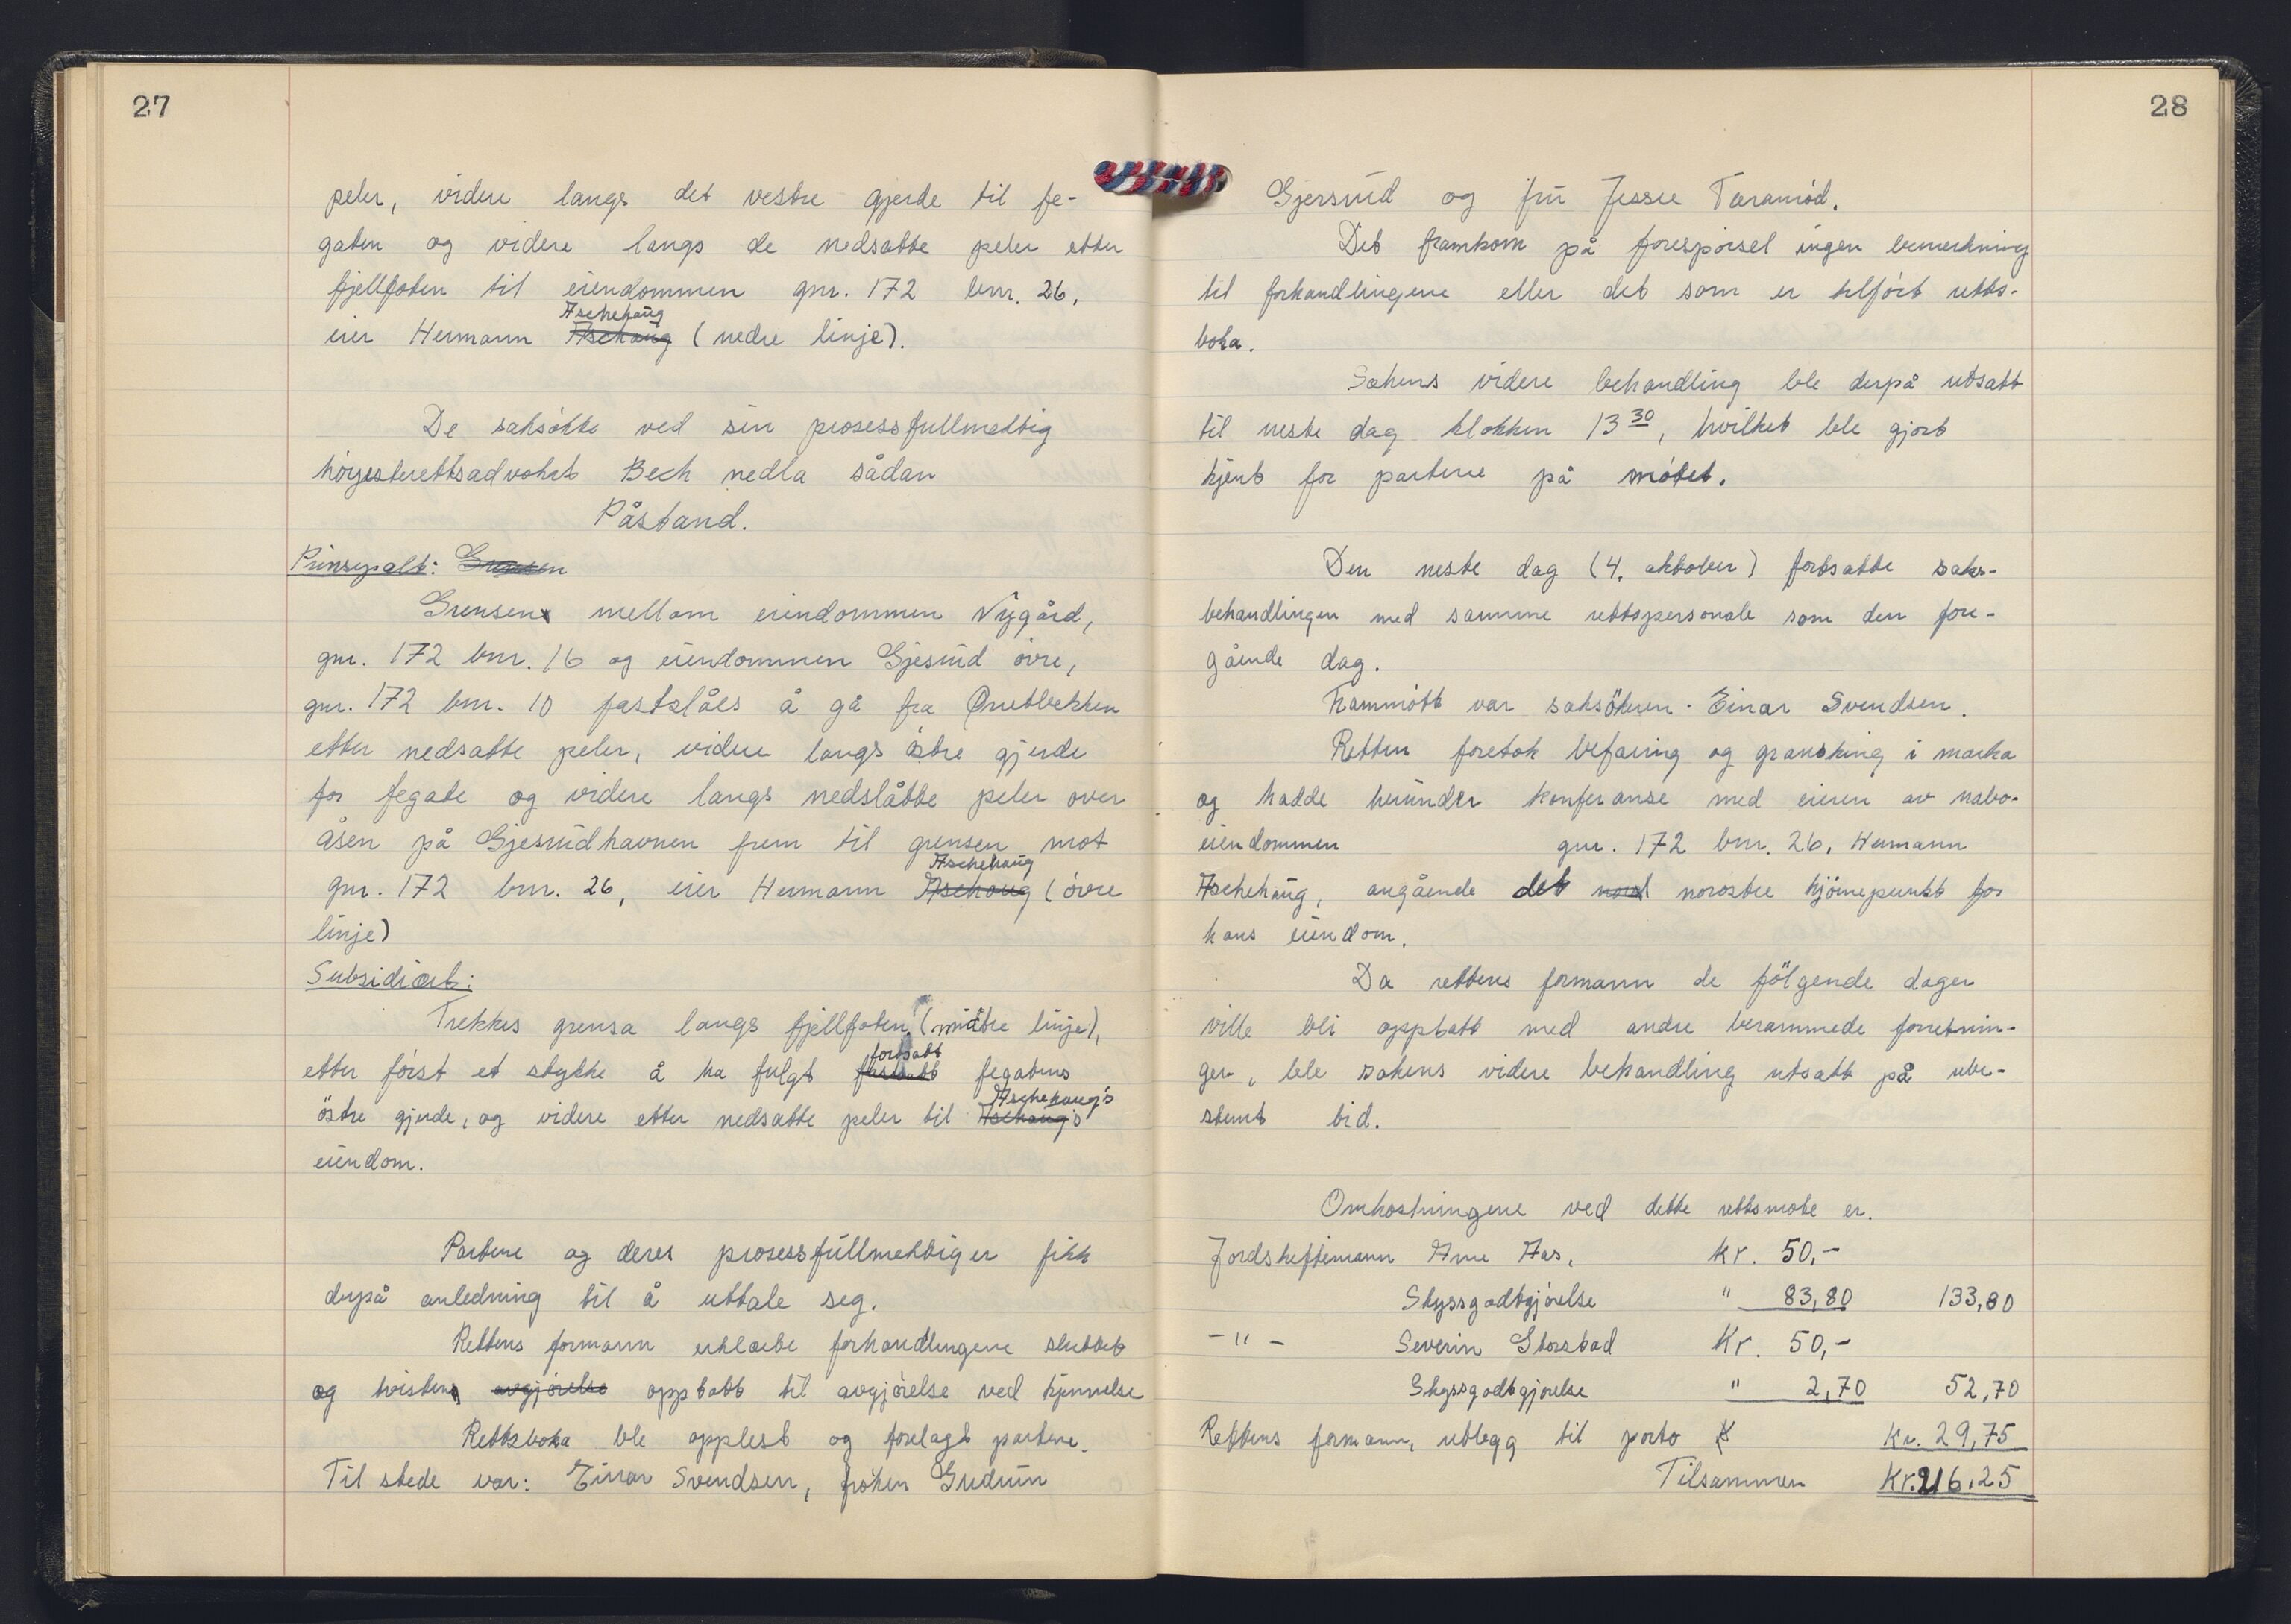 27
peler, videre langs det vestre gjerde til fe-
gaten og videre langs de nedsatte peler etter
fjellfoten til eiendommen gnr. 172 bnr. 26,
Aschehaug
eier Hermann Aschaug (nedre linje).
De saksøkte ved sin prosessfullmektig
høyesterettsadvokat Bech nedla sådan
Påstand.
Prinsypalt: Grensen
Grensen mellom eiendommen Nygård,
gnr. 172 bnr. 16 og eiendommen Gjesrud øvre,
gnr. 172 bnr. 10 fastslåes å gå fra Ønetbekken
etter nedsatte peler, videre langs östre gjerde
for fegate og videre langs nedslåtte peler over
åsen på Gjesrudhavnen frem til grensen mot
Aschehaug
gnr. 172 bnr. 26, eier Hermann Aschaug (övre
linje)
Subsidiært:
Trekkes grensa langs fjellfoten (midtre linje),
fortsatt
etter först et stykke å ha fulgt fastsatt fegatens
Aschehaug's
östre gjerde, og videre etter nedsatte peler til Aschaug's
eiendom.
Partene og deres prosessfullmektiger fikk
derpå anledning til å uttale seg.
Rettens formann erklærte forhandlingene sluttet
og tvisten avgjörelse opptatt til avgjörelse ved kjennelse
Rettsboka ble opplest og forelagt partene.
Til stede var: Einar Svendsen, fröken Gudrun
28
Gjersrud og fru Jessie Taramød.
Det framkom på forespörsel ingen bemerkning
til forhandlingene eller det som er tilfört retts-
boka.
Sakens videre behandling ble derpå utsatt
til neste dag klokken 13 30, hvilket ble gjort
kjent for partene på mötet.
Den neste dag (4. oktober) fortsatte saks-
behandlingen med samme rettspersonale som den fore-
gående dag.
Frammött var saksökeren Einar Svendsen.
Retten foretok befaring og gransking i marka
og hadde herunder konferanse med eieren av nabo-
eiendommen gnr. 172 bnr. 26, Hermann
Aschehaug, angående det nord norostre hjörnepunkt for
hans eiendom.
Da rettens formann de fölgende dager
ville bli opptatt med andre berammede forretnin-
ger, ble sakens videre behandling utsatt på ube-
stemt tid.
Omkostningene ved dette rettsmøte er.
Jordskeftemann Arne Aas, kr. 50,-
Skyssgodtgjörelse " 83,80 133,80
-"- Severin Storstad Kr. 50,-
Skyssgodtgjörelse " 2,70 52,70
Rettens formann, utlegg til porto Kr. 29,75
Tilsammen Kr. 216,25